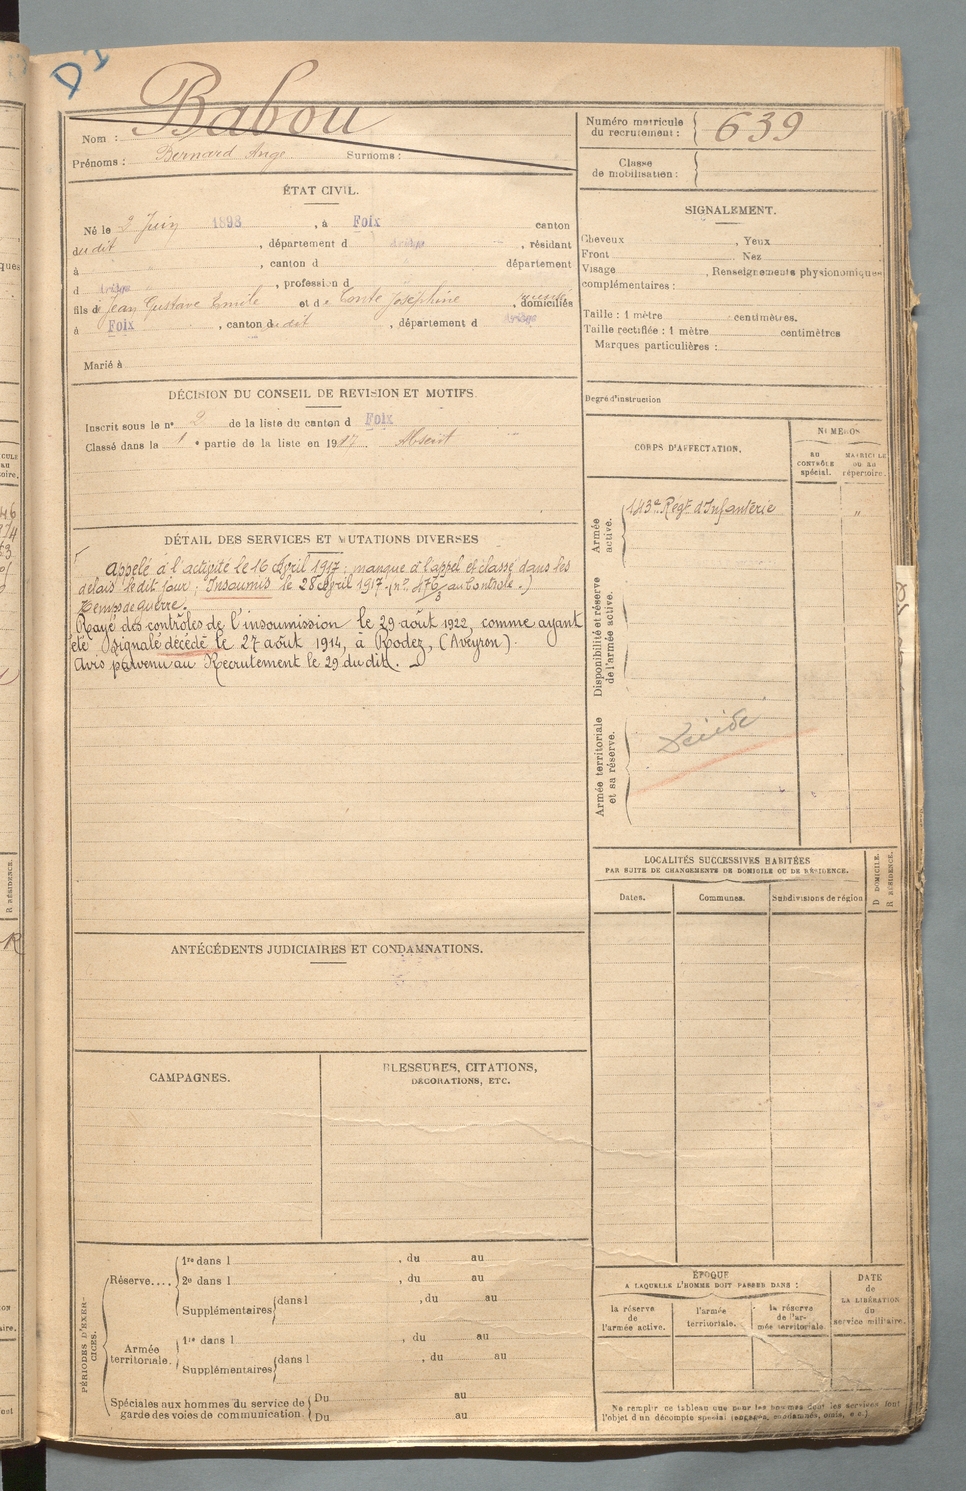 D1
Babou
Nom :
Prénoms : Bernard Ange Surnoms :
Numéro matricule
du recrutement : 639
Classe
de mobilisation :
ÉTAT CIVIL.
Né le 2 Juin 1898, à Foix canton
dudit, département d Ariège, résidant
à , canton d département
d Ariège, profession d
fils d Jean Gustave Emile et de Conte Joséphine, domiciliés
à Foix, canton dudit, département d Ariège
Marié à
SIGNALEMENT.
Cheveux , Yeux
Front Nez
Visage , Renseignements physionomiques
complémentaires :
Taille : 1 mètre centimètres.
Taille rectifiée : 1 mètre centimètres
Marques particulières :
Degré d'instruction
DÉCISION DU CONSEIL DE REVISION ET MOTIFS.
Inscrit sous le n° 2 de la liste du canton d Foix
Classé dans la 1e partie de la liste en 1917. Absent
CORPS D'AFFECTATION.
NUMÉROS
AU
CONTRÔLE
spécial.
MATRICULE
ou au
répertoire.
Armée
active.
143e Regt d'Infanterie "
Disponibilité et réserve
de l'armée active.
Armée territoriale
et sa réserve.
Décédé
DÉTAIL DES SERVICES ET MUTATIONS DIVERSES
Appelé à l'activité le 16 Avril 1917; manque à l'appel et classé dans les
délais le dit jour; Insoumis le 28 avril 1917. (n° au Contrôle.)
Temps de Guerre.
Rayé des contrôles de l'insoumission le 29 août 1922, comme ayant
été signalé décédé le 27 août 1914, à Rodez, (Aveyron).
Avis parvenu au Recrutement le 29 dudit.
LOCALITÉS SUCCESSIVES HABITÉES
PAR SUITE DE CHANGEMENTS DE DOMICILE OU DE RÉSIDENCE.
Dates. Communes. Subdivisions de région
D DOMICILE.
R RÉSIDENCE.
ANTÉCÉDENTS JUDICIAIRES ET CONDAMNATIONS.
CAMPAGNES.
BLESSURES, CITATIONS,
DÉCORATIONS, ETC.
PÉRIODES D'EXER-
CICES.
Réserve....
1re dans l , du au
2e dans l , du au
Supplémentaires dans l , du au
Armée
territoriale.
1re dans l , du au
Supplémentaires dans l , du au
Spéciales aux hommes du service de
garde des voies de communication.
Du au
Du au
ÉPOQUE
A LAQUELLE L'HOMME DOIT PASSER DANS :
la réserve
de
l'armée active.
l'armée
territoriale.
la réserve
de l'ar-
mée territoriale.
DATE
de
LA LIBÉRATION
du
service militaire.
Ne remplir ce tableau que pour les hommes dont les services font
l'objet d'un décompte spécial (engagés, condamnés, omis, etc.)